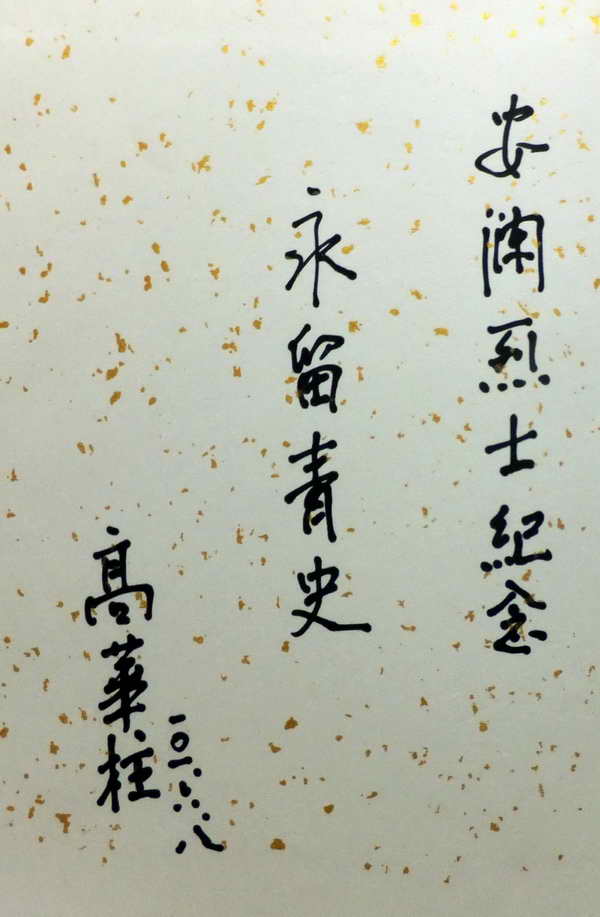 安瀾烈士紀念
永留青史
高華柱
一〇一.六.八